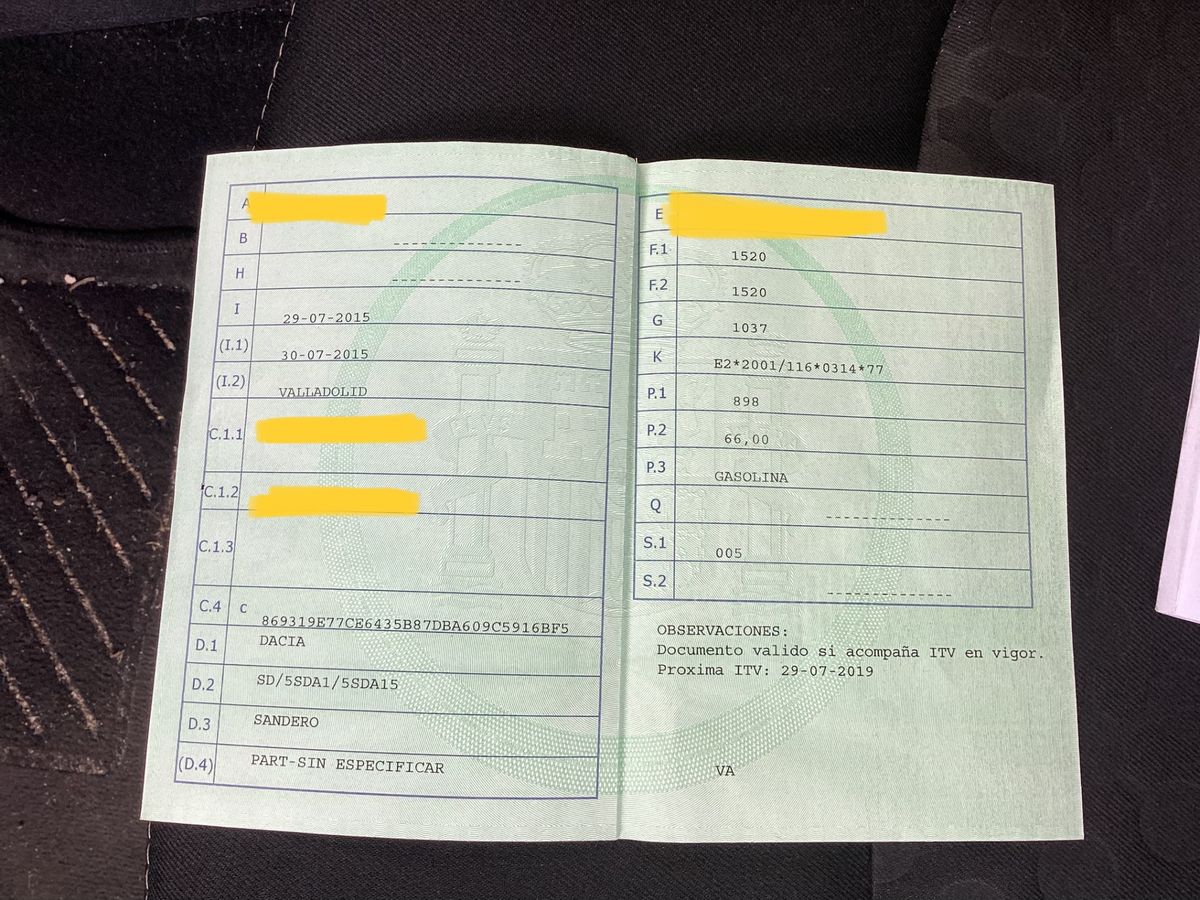 A
B ------------
H ------------
I 29-07-2015
(I.1) 30-07-2015
(I.2) VALLADOLID
C.1.1
C.1.2
C.1.3
C.4 c 869319E77CE6435B87DBA609C5916BF5
D.1 DACIA
D.2 SD/5SDA1/5SDA15
D.3 SANDERO
(D.4) PART-SIN ESPECIFICAR
E
F.1 1520
F.2 1520
G 1037
K E2*2001/116*0314*77
P.1 898
P.2 66,00
P.3 GASOLINA
Q ------------
S.1 005
S.2 ------------
OBSERVACIONES:
Documento valido si acompaña ITV en vigor.
Proxima ITV: 29-07-2019
VA